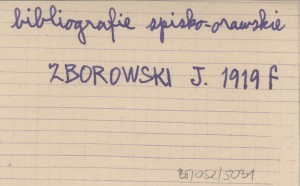 bibliografie spisko-orawskie
ZBOROWSKI J. 1919 f